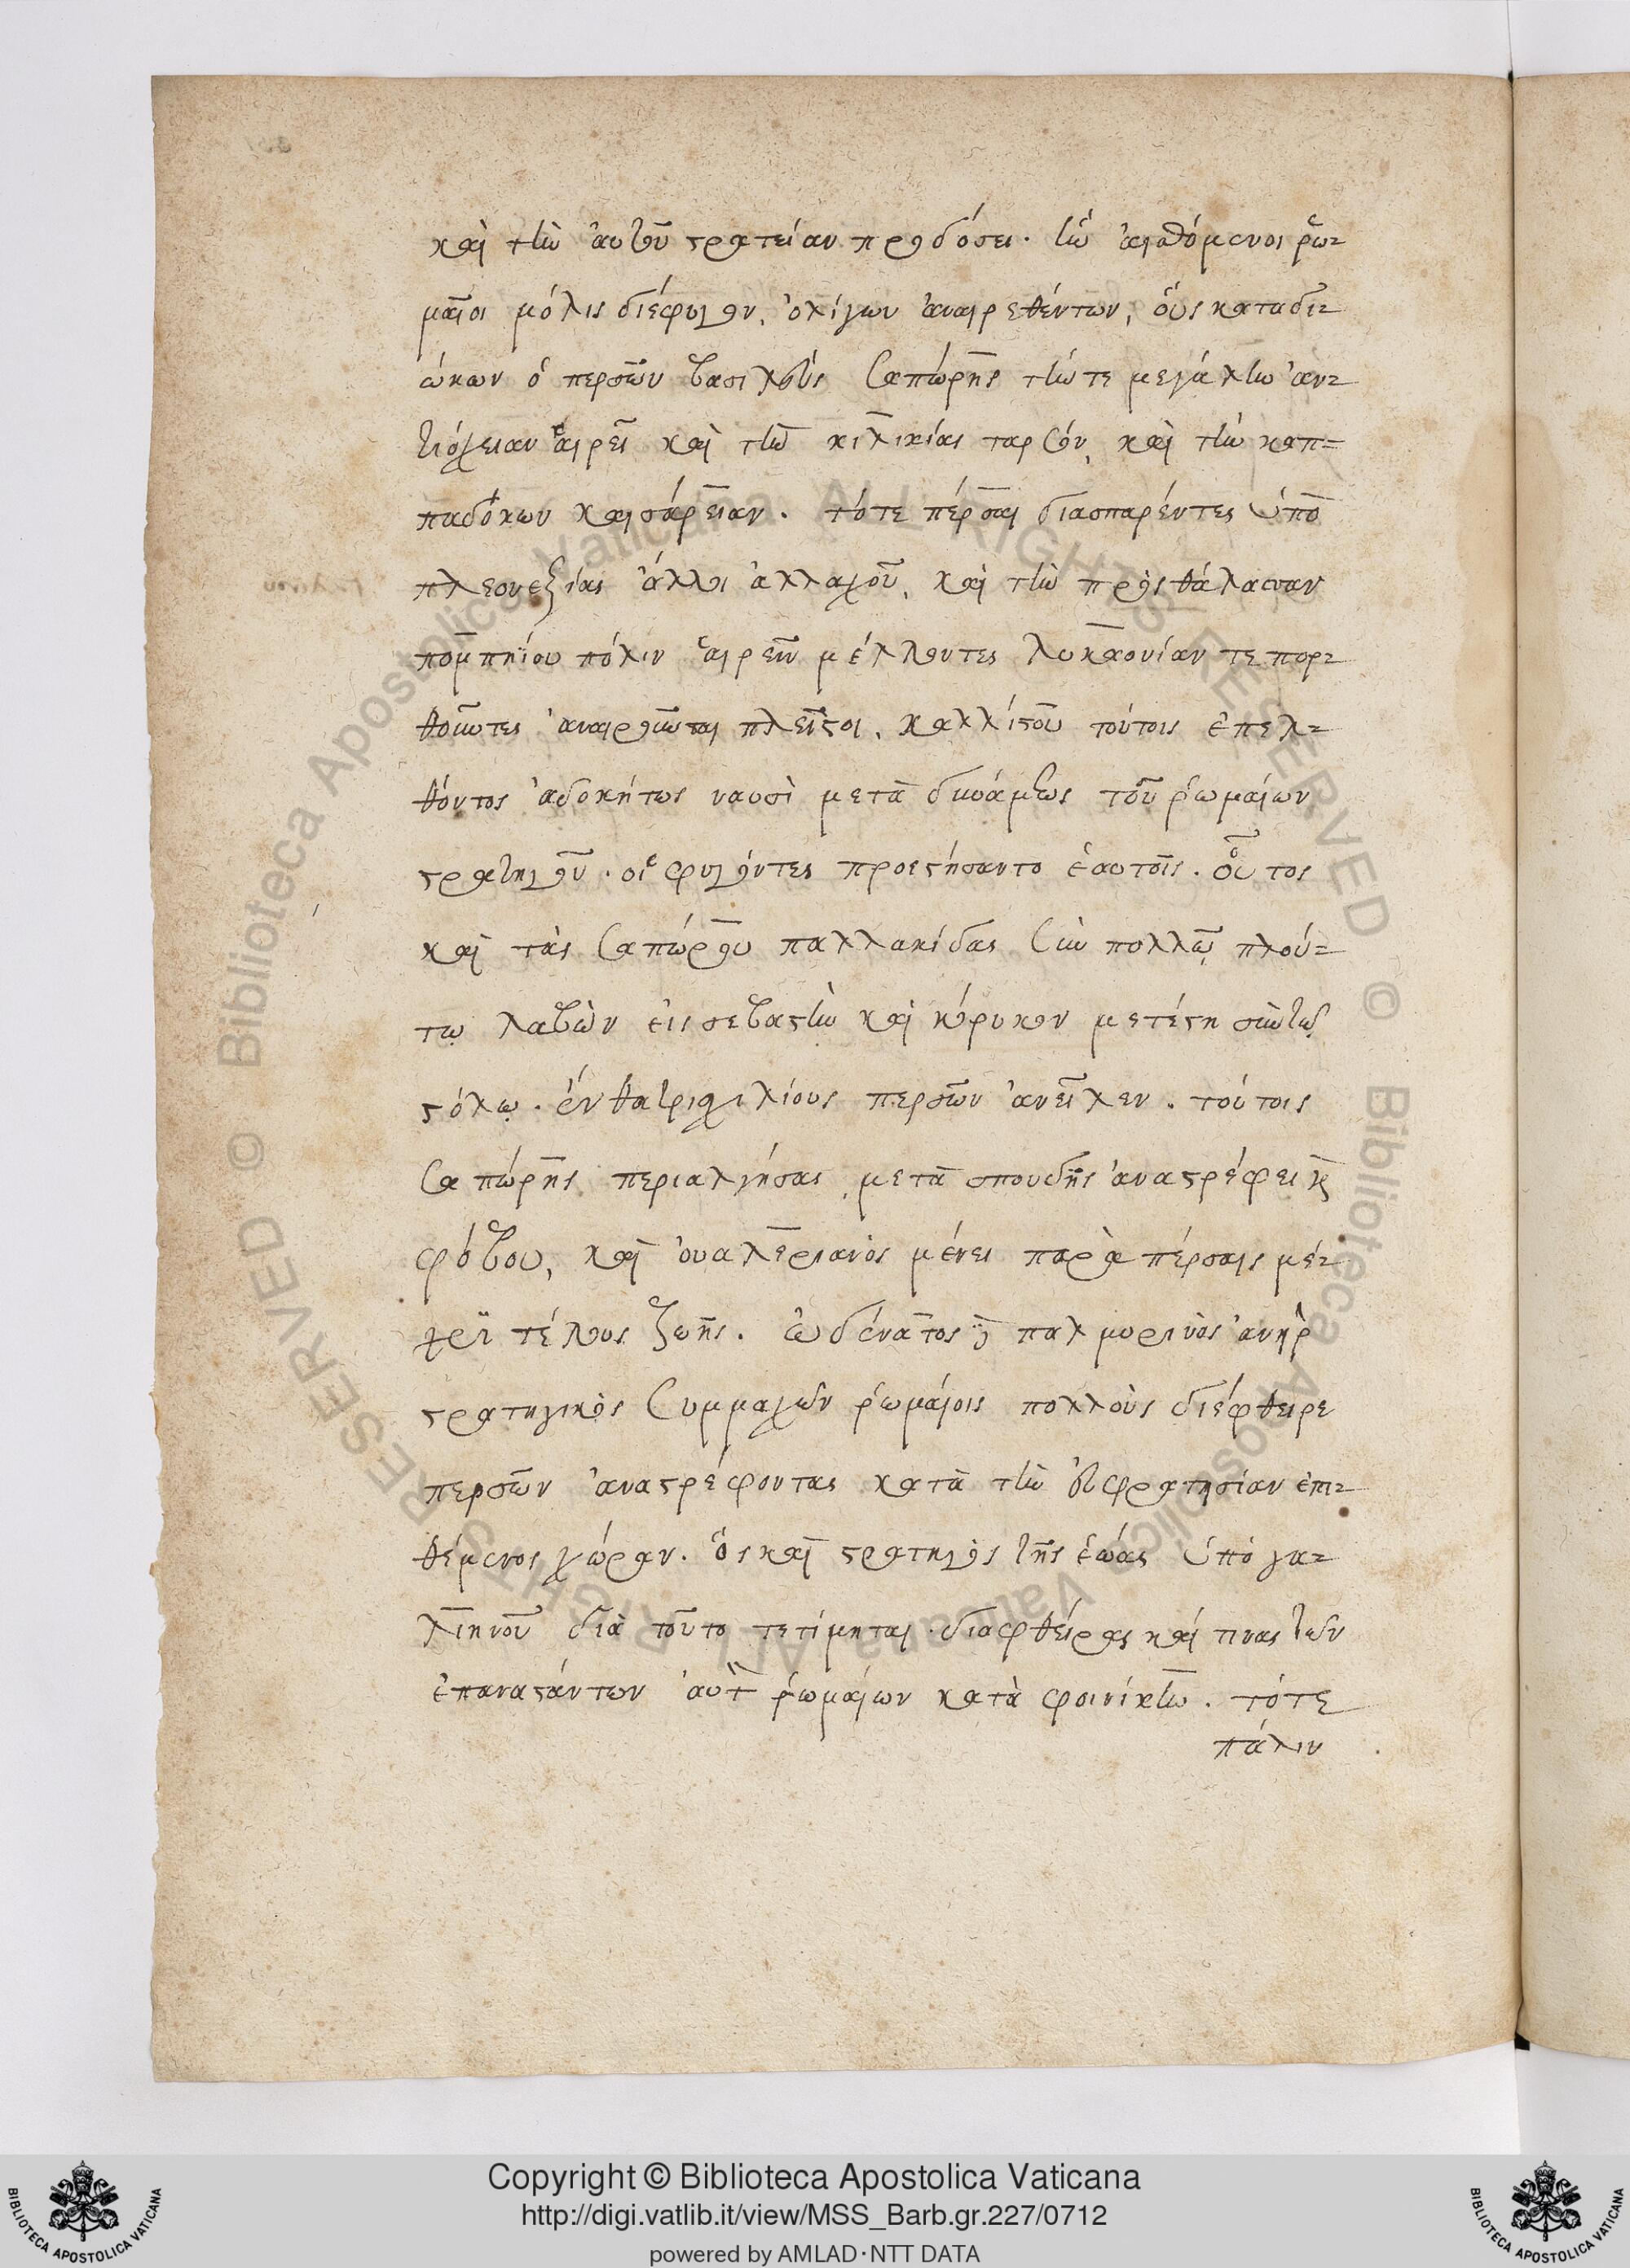 καὶ τὴν αὐτοῦ στρατείαν προδόσει. ἣν αἰσθόμενοι ῥω-
μαῖοι μόλις διέφυγον, ὀλίγων ἀναιρεθέντων, οὓς καταδι-
ώκων ὁ περσῶν βασιλεὺς Σαπώρης τήν τε μεγάλην ἀν-
τιόχειαν αἱρεῖ καὶ τὴν κιλικίας ταρσόν, καὶ τὴν καπ-
παδόκων καισάρειαν. τότε πέρσαι διασπαρέντες ὑπὸ
πλεονεξίας ἄλλοι ἀλλαχοῦ, καὶ τὴν πρὸς θάλασσαν
πομπηΐου πόλιν αἱρεῖν μέλλοντες λυκαονίαν τε πορ-
θοῦντες ἀναιροῦνται πλεῖστοι, καλλίστου τούτοις ἐπελ-
θόντος ἀδοκήτως ναυσὶ μετὰ δυνάμεως τοῦ ῥωμαίων
στρατηγοῦ. οἱ φυγόντες προεστήσαντο ἑαυτοῖς. οὗτος
καὶ τὰς Σαπώρου παλλακίδας σὺν πολλῷ πλού-
τῳ λαβὼν εἰς σεβαστὴν καὶ κώρυκον μετέστη σὺν τῷ
στόλῳ. ἔνθα τρισχιλίους περσῶν ἀνεῖλεν. τούτοις
Σαπώρης περιαλγήσας, μετὰ σπουδῆς ἀναστρέφει καὶ
φόβου, καὶ οὐαλεριανὸς μένει παρὰ πέρσαις μέ-
χρϊ τέλους ζωῆς. ὠδένατος δὲ παλμυρινὸς ἀνὴρ
στρατηγικὸς Συμμαχῶν ῥωμαίοις πολλοὺς διέφθειρε
περσῶν ἀναστρέφοντας κατὰ τὴν εὐφρατησίαν ἐπι-
θέμενος χώραν. ὃς καὶ στρατηγὸς τῆς ἑώας ὑπὸ γα-
λιηνοῦ διὰ τοῦτο τετίμηται. διαφθείρας καί τινας τῶν
ἐπαναστάντων αὐτ ῥωμαίων κατὰ φοινίκην. τότε
πάλιν
Copyright © Biblioteca Apostolica Vaticana
http://digi.vatlib.it/view/MSS_Barb.gr.227/0712
powered by AMLAD·NTT DATA